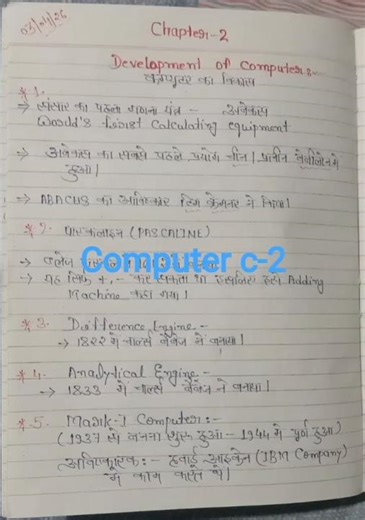 03/04/26
Chapter-2
Development of Computer:-
कम्प्यूटर का विकास
* 1.
⇒ संसार का पहला गणना यंत्र - अबेकस
World's first Calculating equipment
⇒ अबेकस का सबसे पहले प्रयोग चीन / प्राचीन बेबीलोन मे
हुआ।
⇒ ABACUS का आविष्कार टिम क्रेनमर ने किया।
* 2. पास्कलाइन (PASCALINE)
→ ब्लेज
Computer c-2
→ यह सिर्फ +, - कर सकता था इसलिए इसे Adding
Machine कहा गया।
* 3. Difference Engine -
→ 1822 मे चार्ल्स बैबेज ने बनाया।
* 4. Analytical Engine -
→ 1833 मे चार्ल्स बैबेज ने बनाया।
* 5. Mark-1 Computer :-
(1937 से बनना शुरू हुआ - 1944 मे पूर्ण हुआ)
अविष्कारक :- हवार्ड आइकेन (IBM Company)
मे काम करते थे।